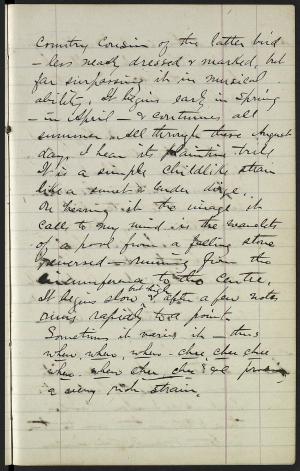 Country Cousin of the latter bird
– less neatly dressed & marked, but
far surpassing it in musical
ability. It begins early in Spring
– in April – & continues all
summer. All through these August
days I hear its plaintive trill
It is a simple childlike strain
like a sweet & tender dirge.
On hearing it the image it
calls to my mind is the wavelets
of a pool from a falling stone
reversed – running from the
circumference to the centre.
It begins slow but high & after a few notes
runs rapidly to a point.
Sometimes it varies it – thus
whew, whew, whew- chee, chee chee
whew- whew chee, chee &c
a very rich strain.